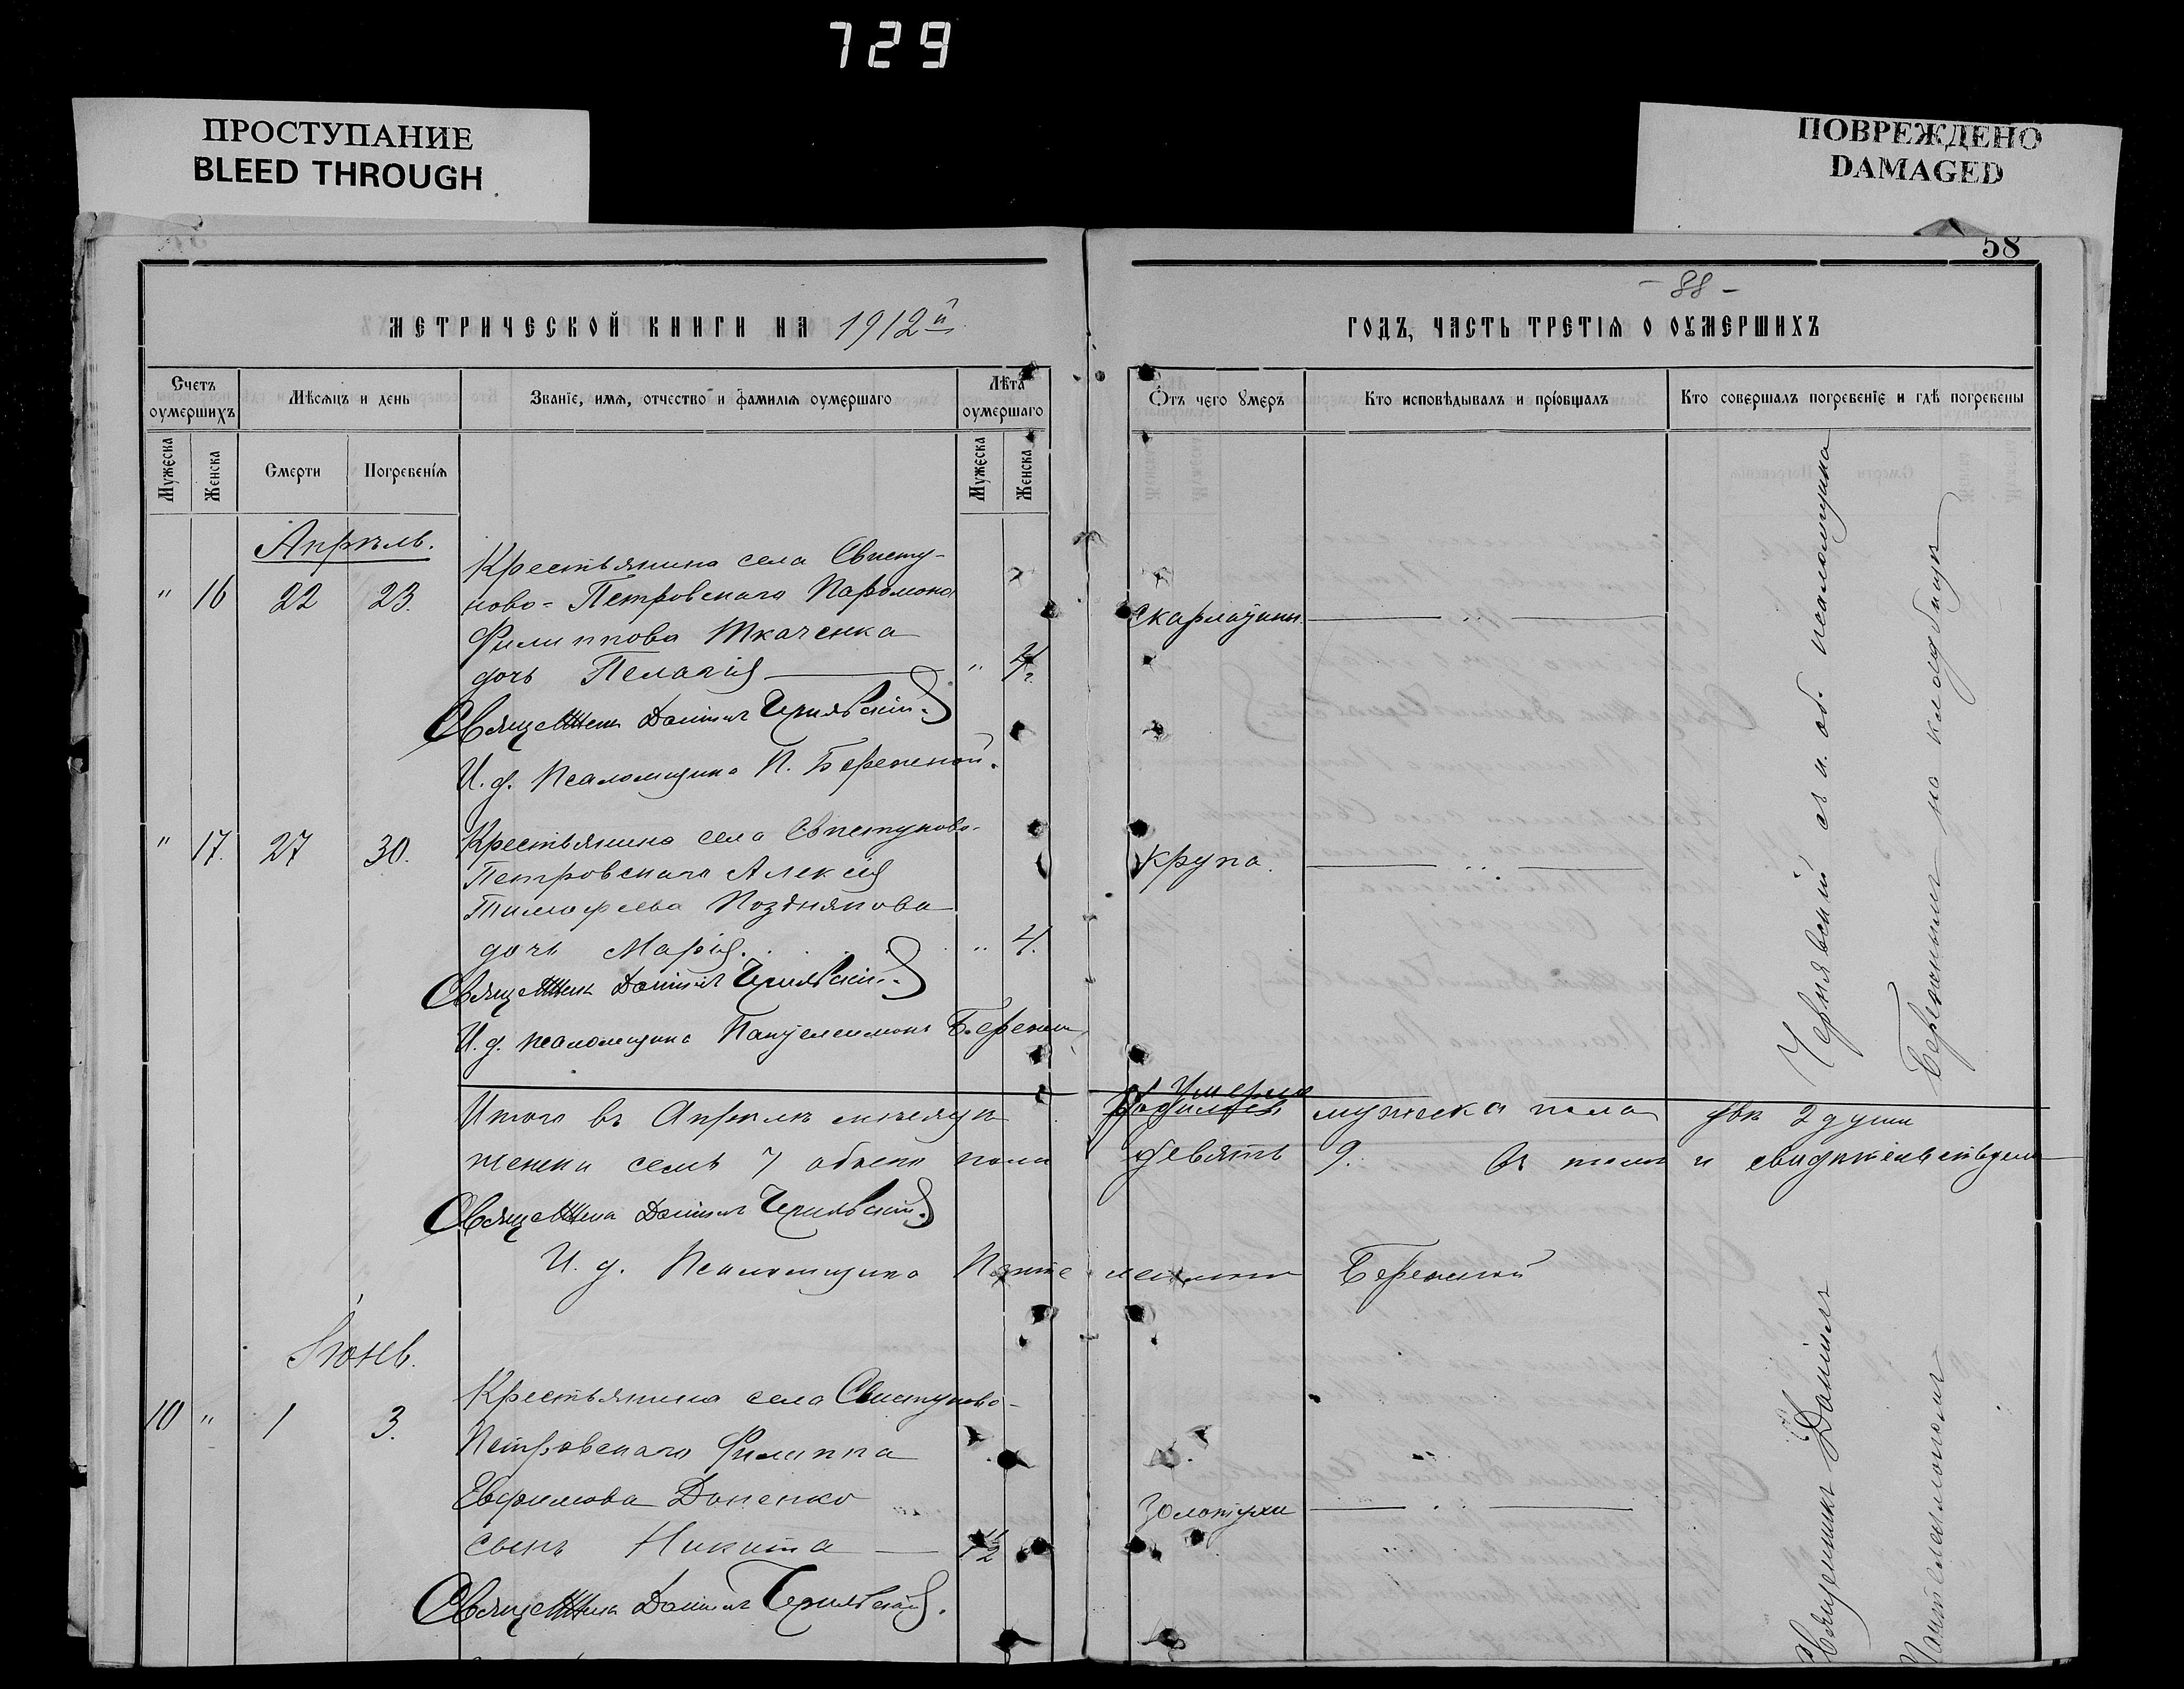 729
ПРОСТУПАНИЕ
BLEED THROUGH
ПОВРЕЖДЕНО
DAMAGED
58
- 88 -
МЕТРИЧЕСКОЙ КНИГИ НА 1912й
ГОДЪ, ЧАСТЬ ТРЕТІЯ О ОУМЕРШИХЪ
Счетъ оумершихъ
Мѣсяцъ и день
Званіе, имя, отчество и фамилія оумершаго
Лѣта оумершаго
Отъ чего умеръ
Кто исповѣдывалъ и пріобщалъ
Кто совершалъ погребеніе и гдѣ погребены
Мужеска
Женска
Смерти
Погребенія
Мужеска
Женска
Апрѣль.
Крестьянина села Свисту-
" 16 22 23. ново-Петровскаго Парамона
Скарлатины
Филиппова Ткаченка
дочь Пелагія " 4 г.
Священникъ Даніилъ Чернявскій.
И. д. Псаломщика П. Бережной.
" 17. 27 30. Крестьянина села Свистуново-
Петровскаго Алексія
Крупа.
Тимофеева Позднякова
дочь Марія. " 4.
Священникъ Даніилъ Чернявскій.
И. д. псаломщика Пантелеимонъ Бережной
Итого въ Апрѣлѣ мѣсяцѣ родилось умерло мужеска пола двѣ 2 души
женска семь 7 обоего пола девять 9. Въ томъ и свидѣтельствуемъ
Священникъ Даніилъ Чернявскій.
И. д. Псаломщика Пантелеимонъ Бережной
Іюнь.
10 " 1 3. Крестьянина села Свистуново-
Петровскаго Филиппа
Евфимова Доненко
Золотухи
сынъ Никита 1 1/2
Священникъ Даніилъ Чернявскій.
Священникъ Даніилъ Чернявскій съ и. об. псаломщика
Пантелеимономъ Бережнымъ на кладбищѣ